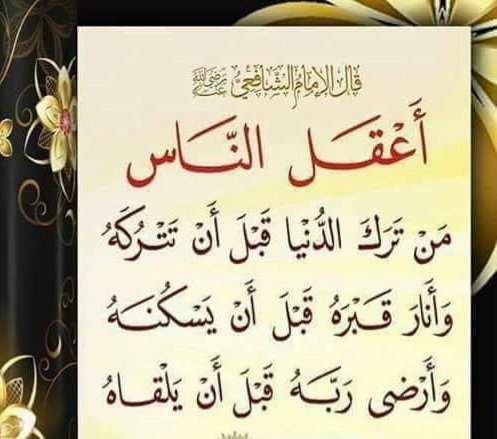 قال الإمام الشافعي رضي الله عنه
أَعْقَل النَّاس
مَنْ تَرَكَ الدُّنْيا قَبْلَ أَن تَتْرُكَهُ
وَأَنارَ قَبْرَهُ قَبْلَ أَنْ يَسْكُنَهُ
وَأَرْضى رَبَّهُ قَبْلَ أَنْ يَلْقاهُ